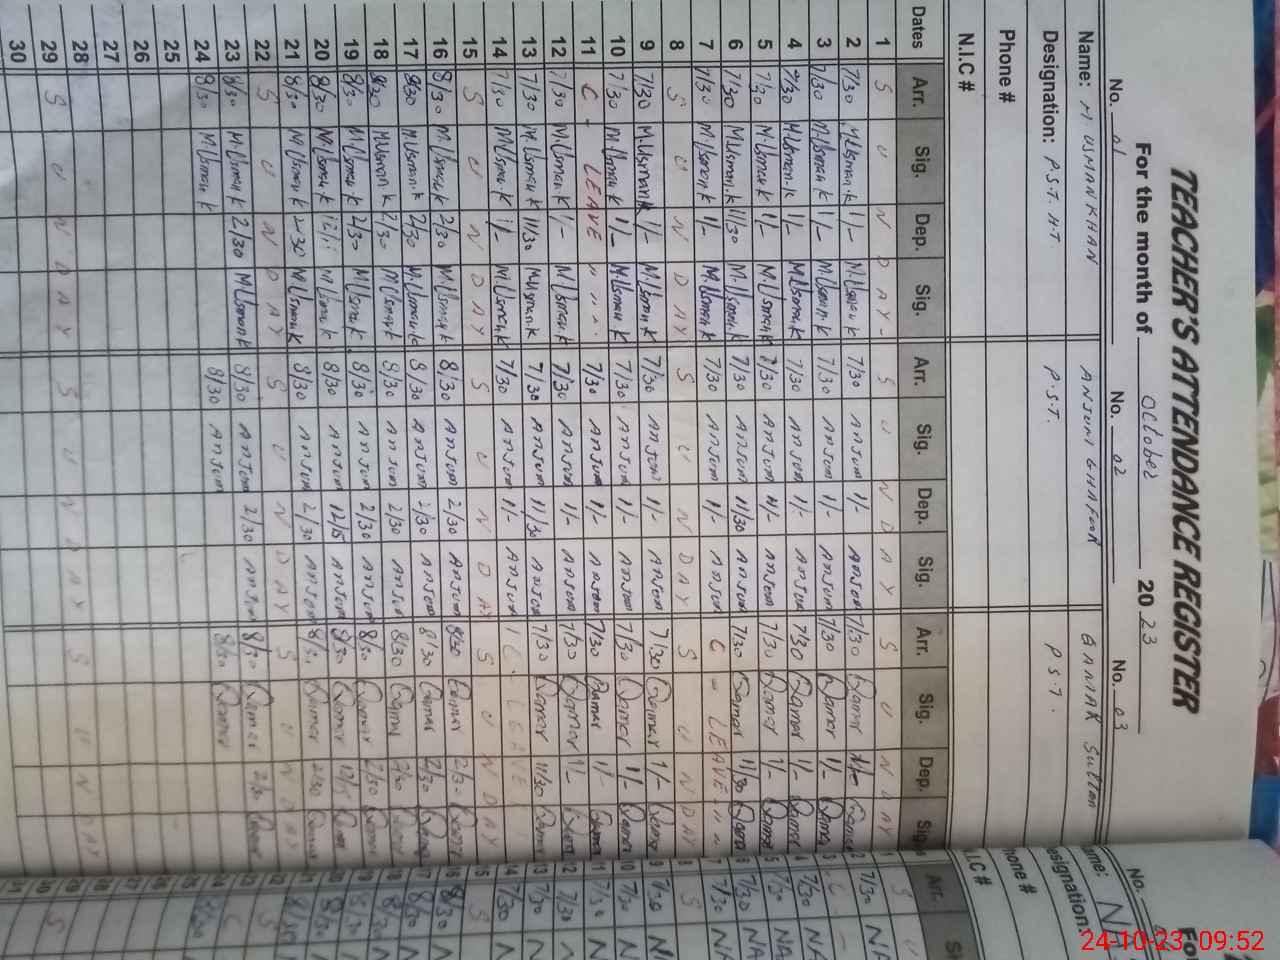 TEACHER'S ATTENDANCE REGISTER
For the month of October 2023
No. 01 No. 02 No. 03
Name: M USMAN KHAN ANJUM GHAFOOR Sultan
Designation: P.S.T. H.T P.S.T. P S T.
Phone #
N.I.C #
Dates Arr. Sig. Dep. Sig. Arr. Sig. Dep. Sig. Arr. Sig. Dep. Sig.
1 S U N D A Y S U N D A Y S U N D A Y
2 7/30 M.Usman.k 1/- M.Usman.k 7/30 Anjum 1/- Anjum 7/30 Qamar
3 7/30 M.Usman k 1/- M.Usman.k 7/30 Anjum 1/- Anjum 7/30 Qamar 1/- Qamar
4 7/30 M.Usman.k 1/- M.Usman.k 7/30 Anjum 1/- Anjum 7/30 Qamar 1/- Qamar
5 7/30 M.Usman k 1/- M.Usman k 7/30 Anjum 1/- Anjum 7/30 Qamar 1/- Qamar
6 7/30 M.Usman.k 11/30 M.Usman.k 7/30 Anjum 11/30 Anjum 7/30 Qamar 11/30 Qamar
7 7/30 M.Usman k 1/- M.Usman k 7/30 Anjum 1/- Anjum C - LEAVE " "
8 S U N D A Y S U N D A Y S U N D A Y
9 7/30 M.Usman k 1/- M.Usman.k 7/30 Anjum 1/- Anjum 7/30 Qamar 1/- Qamar
10 7/30 M.Usman k 1/- M.Usman k 7/30 Anjum 1/- Anjum 7/30 Qamar 1/- Qamar
11 C - LEAVE " " " 7/30 Anjum 1/- Anjum 7/30 Qamar 1/- Qamar
12 7/30 M.Usman k 1/- M.Usman k 7/30 Anjum 1/- Anjum 7/30 Qamar 1/- Qamar
13 7/30 M.Usman k 11/30 M.Usman.k 7/30 Anjum 11/30 Anjum 7/30 Qamar 11/30 Qamar
14 7/30 M.Usman.k 1/- M.Usman k 7/30 Anjum 1/- Anjum C. LEAVE
15 S U N D A Y S U N D A Y S U N D A Y
16 8/30 M.Usman k 2/30 M.Usman k 8/30 Anjum 2/30 Anjum 8/30 Qamar 2/30 Qamar
17 8/30 M.Usman.k 2/30 M.Usman k 8/30 Anjum 2/30 Anjum 8/30 Qamar 2/30 Qamar
18 8/30 M.Usman.k 2/30 M.Usman k 8/30 Anjum 2/30 Anjum 8/30 Qamar 2/30 Qamar
19 8/30 M.Usman k 2/30 M.Usman k 8/30 Anjum 2/30 Anjum 8/30 Qamar 2/30 Qamar
20 8/30 M.Usman k M.Usman k 8/30 Anjum 12/15 Anjum 8/30 Qamar 12/15 Qamar
21 8/30 M.Usman k 2/30 M.Usman k 8/30 Anjum 2/30 Anjum 8/30 Qamar 2/30 Qamar
22 S U N D A Y S U N D A Y S U N D A Y
23 8/30 M.Usman k 2/30 M.Usman k 8/30 Anjum 2/30 Anjum 8/30 Qamar 2/30 Qamar
24 8/30 M.Usman k 8/30 Anjum 8/30 Qamar
25
26
27
28
29 S U N D A Y S U N D A Y S U N D A Y
30
24-10-23, 09:52